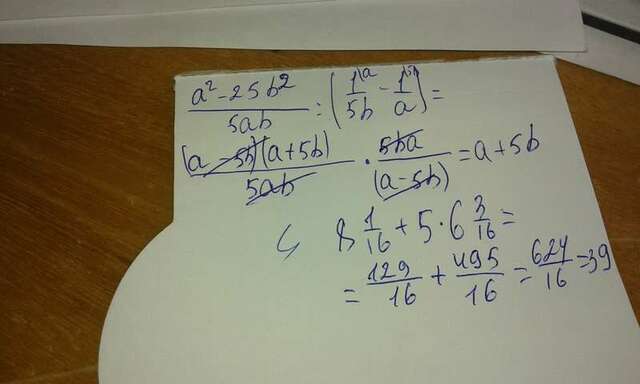 (a² - 25b²)/5ab : (1\a/5b - 1\5b/a) =
(a - 5b)(a + 5b)/5ab · 5ba/(a - 5b) = a + 5b
8 1/16 + 5 · 6 3/16 =
= 129/16 + 495/16 = 624/16 = 39